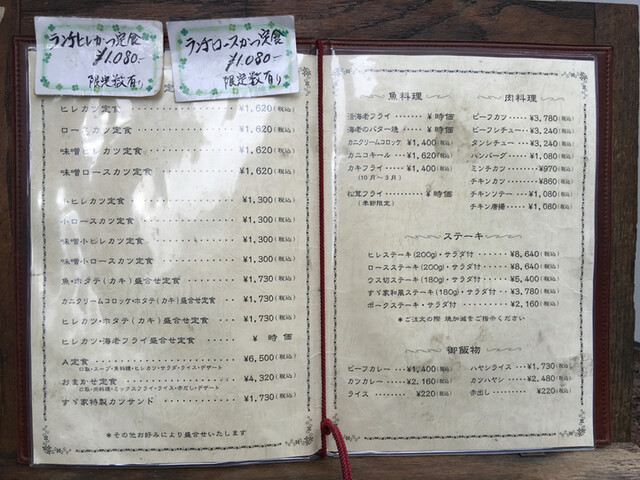 ランチヒレかつ定食
¥1,080-
限定数有り
ランチロースかつ定食
¥1,080-
限定数有り
定
ヒレカツ定食 ¥1,620(税込)
ロースカツ定食 ¥1,620(税込)
味噌ヒレカツ定食 ¥1,620(税込)
味噌ロースカツ定食 ¥1,620(税込)
小ヒレカツ定食 ¥1,300(税込)
小ロースカツ定食 ¥1,300(税込)
味噌小ヒレカツ定食 ¥1,300(税込)
味噌小ロースカツ定食 ¥1,300(税込)
魚・ホタテ(カキ)盛合せ定食 ¥1,730(税込)
カニクリームコロッケ・ホタテ(カキ)盛合せ定食 ¥1,730(税込)
ヒレカツ・ホタテ(カキ)盛合せ定食 ¥1,730(税込)
ヒレカツ・海老フライ盛合せ定食 ¥ 時価
A定食 ¥6,500(税込)
口取・スープ・魚料理・ヒレカツ・サラダ・ライス・デザート
おまかせ定食 ¥4,320(税込)
口取・肉料理・ミックスフライ・ライス・赤だし・デザート
すゞ家特製カツサンド ¥1,730(税込)
*その他お好みにより盛合せいたします
魚料理
活海老フライ ¥ 時価
海老のバター焼 ¥ 時価
カニクリームコロッケ ¥1,400(税込)
カニコキール ¥1,620(税込)
カキフライ ¥1,400(税込)
(10月～3月)
松茸フライ ¥ 時価
(季節限定)
肉料理
ビーフカツ ¥3,780(税込)
ビーフシチュー ¥3,240(税込)
タンシチュー ¥3,240(税込)
ハンバーグ ¥1,080(税込)
ミンチカツ ¥970(税込)
チキンカツ ¥860(税込)
チキンソテー ¥1,080(税込)
チキン唐揚 ¥1,080(税込)
ステーキ
ヒレステーキ(200g)・サラダ付 ¥8,640(税込)
ロースステーキ(200g)・サラダ付 ¥8,640(税込)
ウス切ステーキ(180g)・サラダ付 ¥5,400(税込)
すゞ家和風ステーキ(180g)・サラダ付 ¥3,780(税込)
ポークステーキ・サラダ付 ¥2,160(税込)
*ご注文の際 焼加減をご指示ください
御飯物
ビーフカレー ¥1,400(税込)
カツカレー ¥2,160(税込)
ライス ¥220(税込)
ハヤシライス ¥1,730(税込)
カツハヤシ ¥2,480(税込)
赤出し ¥220(税込)